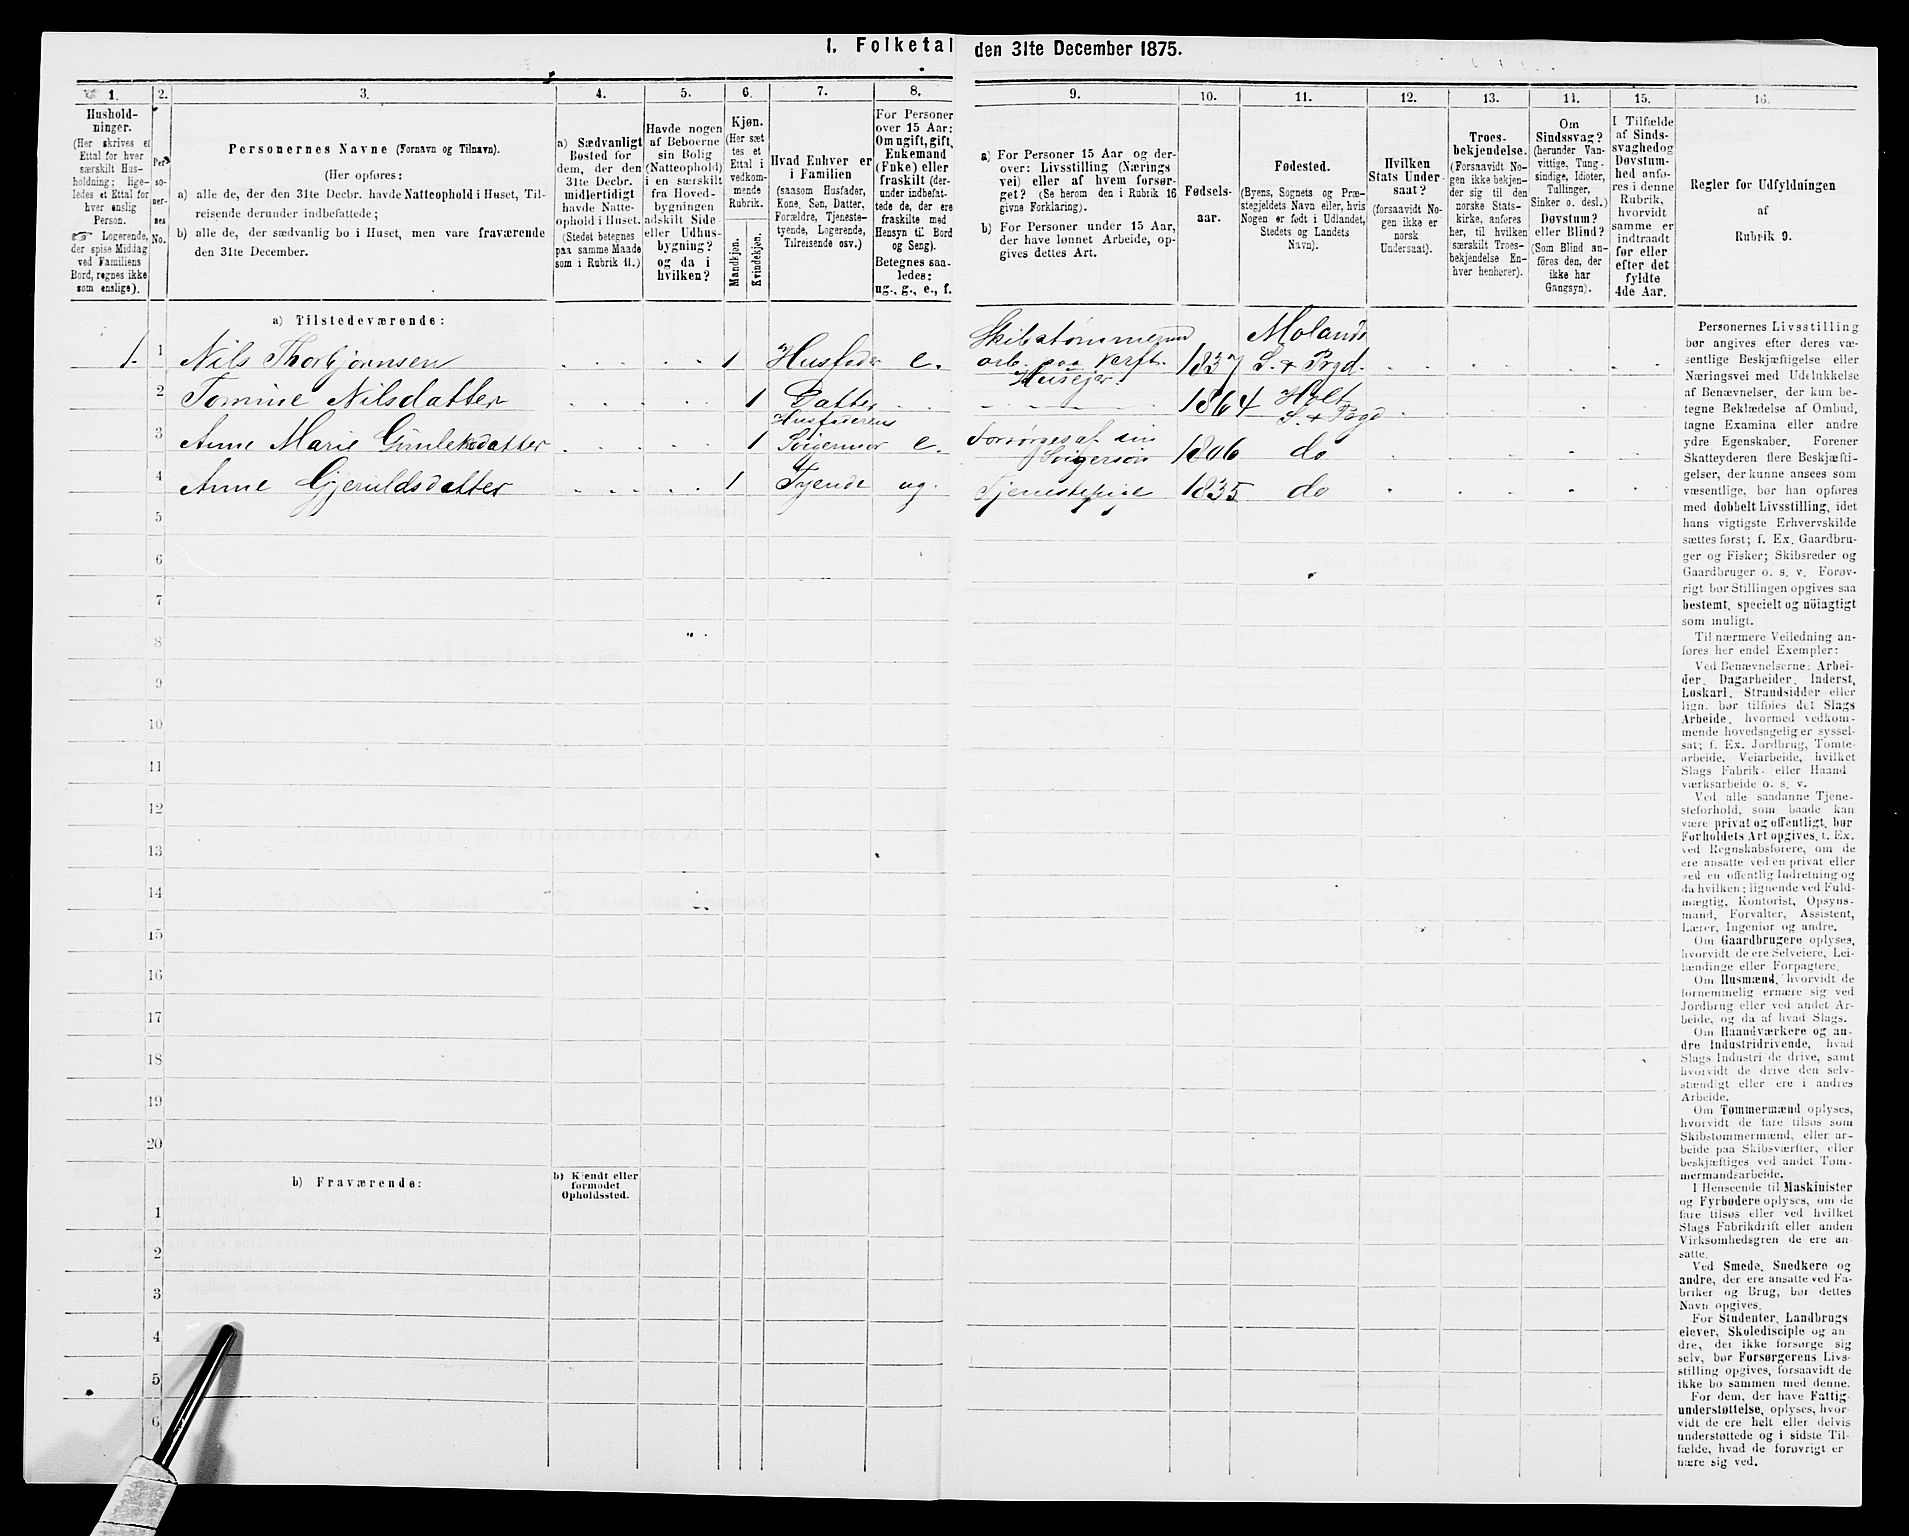 1. Folketal den 31te December 1875.
1. 2. 3. 4. 5. 6. 7. 8. 9. 10. 11. 12. 13. 14. 15. 16.
Hushold-
ninger.
(Her skrives et
Ettal for hver
særskilt Hus-
holdning; lige-
ledes et Ettal for
hver enslig
Person.
☞ Logerende,
der spise Middag
ved Familiens
Bord, regnes ikke
som enslige).
Per
so-
ner-
nes
No.
Personernes Navne (Fornavn og Tilnavn).
(Her opføres:
a) alle de, der den 31te Decbr. havde Natteophold i Huset, Til-
reisende derunder indbefattede;
b) alle de, der sædvanlig bo i Huset, men vare fraværende
den 31te December.
a) Sædvanligt
Bosted for
dem, der den
31te Decbr.
midlertidigt
havde Natte-
ophold i Huset.
(Stedet betegnes
paa samme Maade
som i Rubrik 11.)
Havde nogen
af Beboerne
sin Bolig
(Natteophold)
i en særskilt
fra Hoved-
bygningen
adskilt Side-
eller Udhus-
bygning?
og da i
hvilken?
Kjøn.
(Her sæt
tes et
Ettal i
vedkom-
mende
Rubrik.
Mandkjøn.
Kvindekjøn.
Hvad Enhver er
i Familien
(saasom Husfader,
Kone, Søn, Datter,
Forældre, Tjeneste-
tyende, Logerende,
Tilreisende osv.)
For Personer
over 15 Aar:
Om ugift, gift,
Enkemand
(Enke) eller
fraskilt (der-
under indbefat-
tede de, der ere
fraskilte med
Hensyn til Bord
og Seng).
Betegnes saa-
ledes:
ug., g., e., f.
a) For Personer 15 Aar og der-
over: Livsstilling (Nærings
vei) eller af hvem forsør-
get? (Se herom den i Rubrik 16
givne Forklaring).
b) For Personer under 15 Aar,
der have lønnet Arbeide, op-
gives dettes Art.
Fødsels-
aar.
Fødested.
(Byens, Sognets og Præ-
stegjeldets Navn eller, hvis
Nogen er født i Udlandet,
Stedets og Landets
Navn).
Hvilken
Stats Under
saat?
(forsaavidt No-
gen ikke er
norsk
Undersaat).
Troes-
bekjendelse.
(Forsaavidt No-
gen ikke bekjen-
der sig til den
norske Stats-
kirke, anføres
her, til hvilken
særskilt Troes-
bekjendelse En-
hver henhører).
Om
Sindssvag?
(herunder Van-
vittige, Tung-
sindige, Idioter,
Tullinger,
Sinker o. desl.)
Døvstum?
eller Blind?
(Som Blind an-
føres den, der
ikke har
Gangsyn).
I Tilfælde
af Sinds-
svaghed og
Døvstum-
hed anfø-
res i denne
Rubrik,
hvorvidt
samme er
indtraadt
før eller
efter det
fyldte
4de Aar.
Regler for Udfyldningen
af
Rubrik 9.
a) Tilstedeværende:
1. 1 Nils Thorbjørnsen 1 Husfader e. Skibstømmerm arb. paa Verft. Husejer. 1837 Molands S. & Prgd.
2 Tomine Nilsdatter 1 Datter 1864 Holt S. & Prgd
3 Anne Marie Gunleksdatter 1 Husfaderens Svigermor e. Forsørges af sin Svigersøn 1806 do
4 Anne Gjeruldsdatter 1 Tyende ug. Tjenestepige 1835 do
5
6
7
8
9
10
11
12
13
14
15
16
17
18
19
20
b) Fraværende:
b) Kjendt eller
formodet
Opholdssted.
1
2
3
4
5
6
Personernes Livsstilling
bør angives efter deres væ-
sentlige Beskjæftigelse eller
Næringsvei med Udelukkelse
af Benævnelser, der kun be-
tegne Beklædelse af Ombud,
tagne Examina eller andre
ydre Egenskaber. Forener
Skatteyderen flere Beskjæfti-
gelser, der kunne ansees som
væsentlige, bør han opføres
med dobbelt Livsstilling, idet
hans vigtigste Erhvervskilde
sættes først; f. Ex. Gaardbru-
ger og Fisker; Skibsreder og
Gaardbruger o. s. v. Forøv-
rigt bør Stillingen opgives saa
bestemt, specielt og nöiagtigt
som muligt.
Til nærmere Veiledning an-
føres her endel Exempler:
Ved Benævnelserne: Arbei-
der, Dagarbeider, Inderst,
Løskarl, Strandsidder eller
lign. bør tilføies det Slags
Arbeide, hvormed vedkom-
mende hovedsagelig er syssel-
sat; f. Ex. Jordbrug, Tomte-
arbeide, Veiarbeide, hvilket
Slags Fabrik- eller Haand
værksarbeide o. s. v.
Ved alle saadanne Tjene-
steforhold, som baade kan
være privat og offentligt, bør
Forholdets Art opgives, t. Ex.
ved Regnskabsførere, om de
ere ansatte ved en privat eller
ved en offentlig Indretning og
da hvilken; lignende ved Fuld-
mægtig, Kontorist, Opsyns-
mand, Forvalter, Assistent,
Lærer, Ingeniør og andre.
Om Gaardbrugere oplyses,
hvorvidt de ere Selveiere, Lei-
lændinge eller Forpagtere.
Om Husmænd, hvorvidt de
fornemmelig ernære sig ved
Jordbrug eller ved andet Ar-
beide, og da af hvad Slags.
Om Haandværkere og an-
dre Industridrivende, hvad
Slags Industri de drive, samt
hvorvidt de drive den selv-
stændigt eller ere i andres
Arbeide.
Om Tømmermænd oplyses,
hvorvidt de fare tilsøs som
Skibstømmermænd, eller ar-
beide paa Skibsværfter, eller
beskjæftiges ved andet Tøm-
mermandsarbeide.
I Henseende til Maskinister
og Fyrbødere oplyses, om de
fare tilsøs eller ved hvilket
Slags Fabrikdrift eller anden
Virksomhedsgren de ere an-
satte.
Ved Smede, Snedkere og
andre, der ere ansatte ved Fa-
briker og Brug, bør dettes
Navn opgives.
For Studenter, Landbrugs
elever, Skoledisciple og an
dre, der ikke forsørge sig
selv, bør Forsørgerens Livs-
stilling opgives, forsaavidt de
ikke bo sammen med denne.
For dem, der have Fattig-
understøttelse, oplyses, hvor-
vidt de ere helt eller delvis
understøttede og i sidste Til-
fælde, hvad de forøvrigt er
nære sig ved.